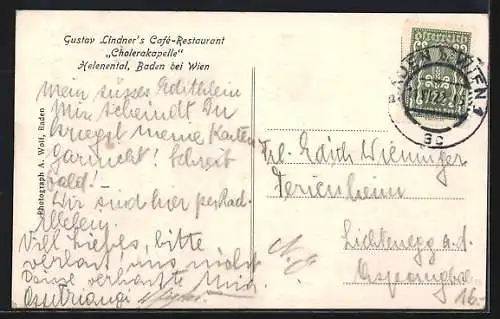 Gustav Lindner's Café-Restaurant
„Cholerakapelle"
Helenental, Baden bei Wien
Photograph A. Wolf, Baden
Mein süsses Edithlein
Mir scheint Du
kriegst meine Karten
garnicht! Schreib
bald!
Wir sind hier per Rad.
Viel Liebes, bitte
verlast uns nicht
Deine
BADEN b. WIEN 1
3c
Frl. Edith Wieninger
Ferienheim
Lichtenegg a.d.
Aspangbahn
N.Ö.
16.-